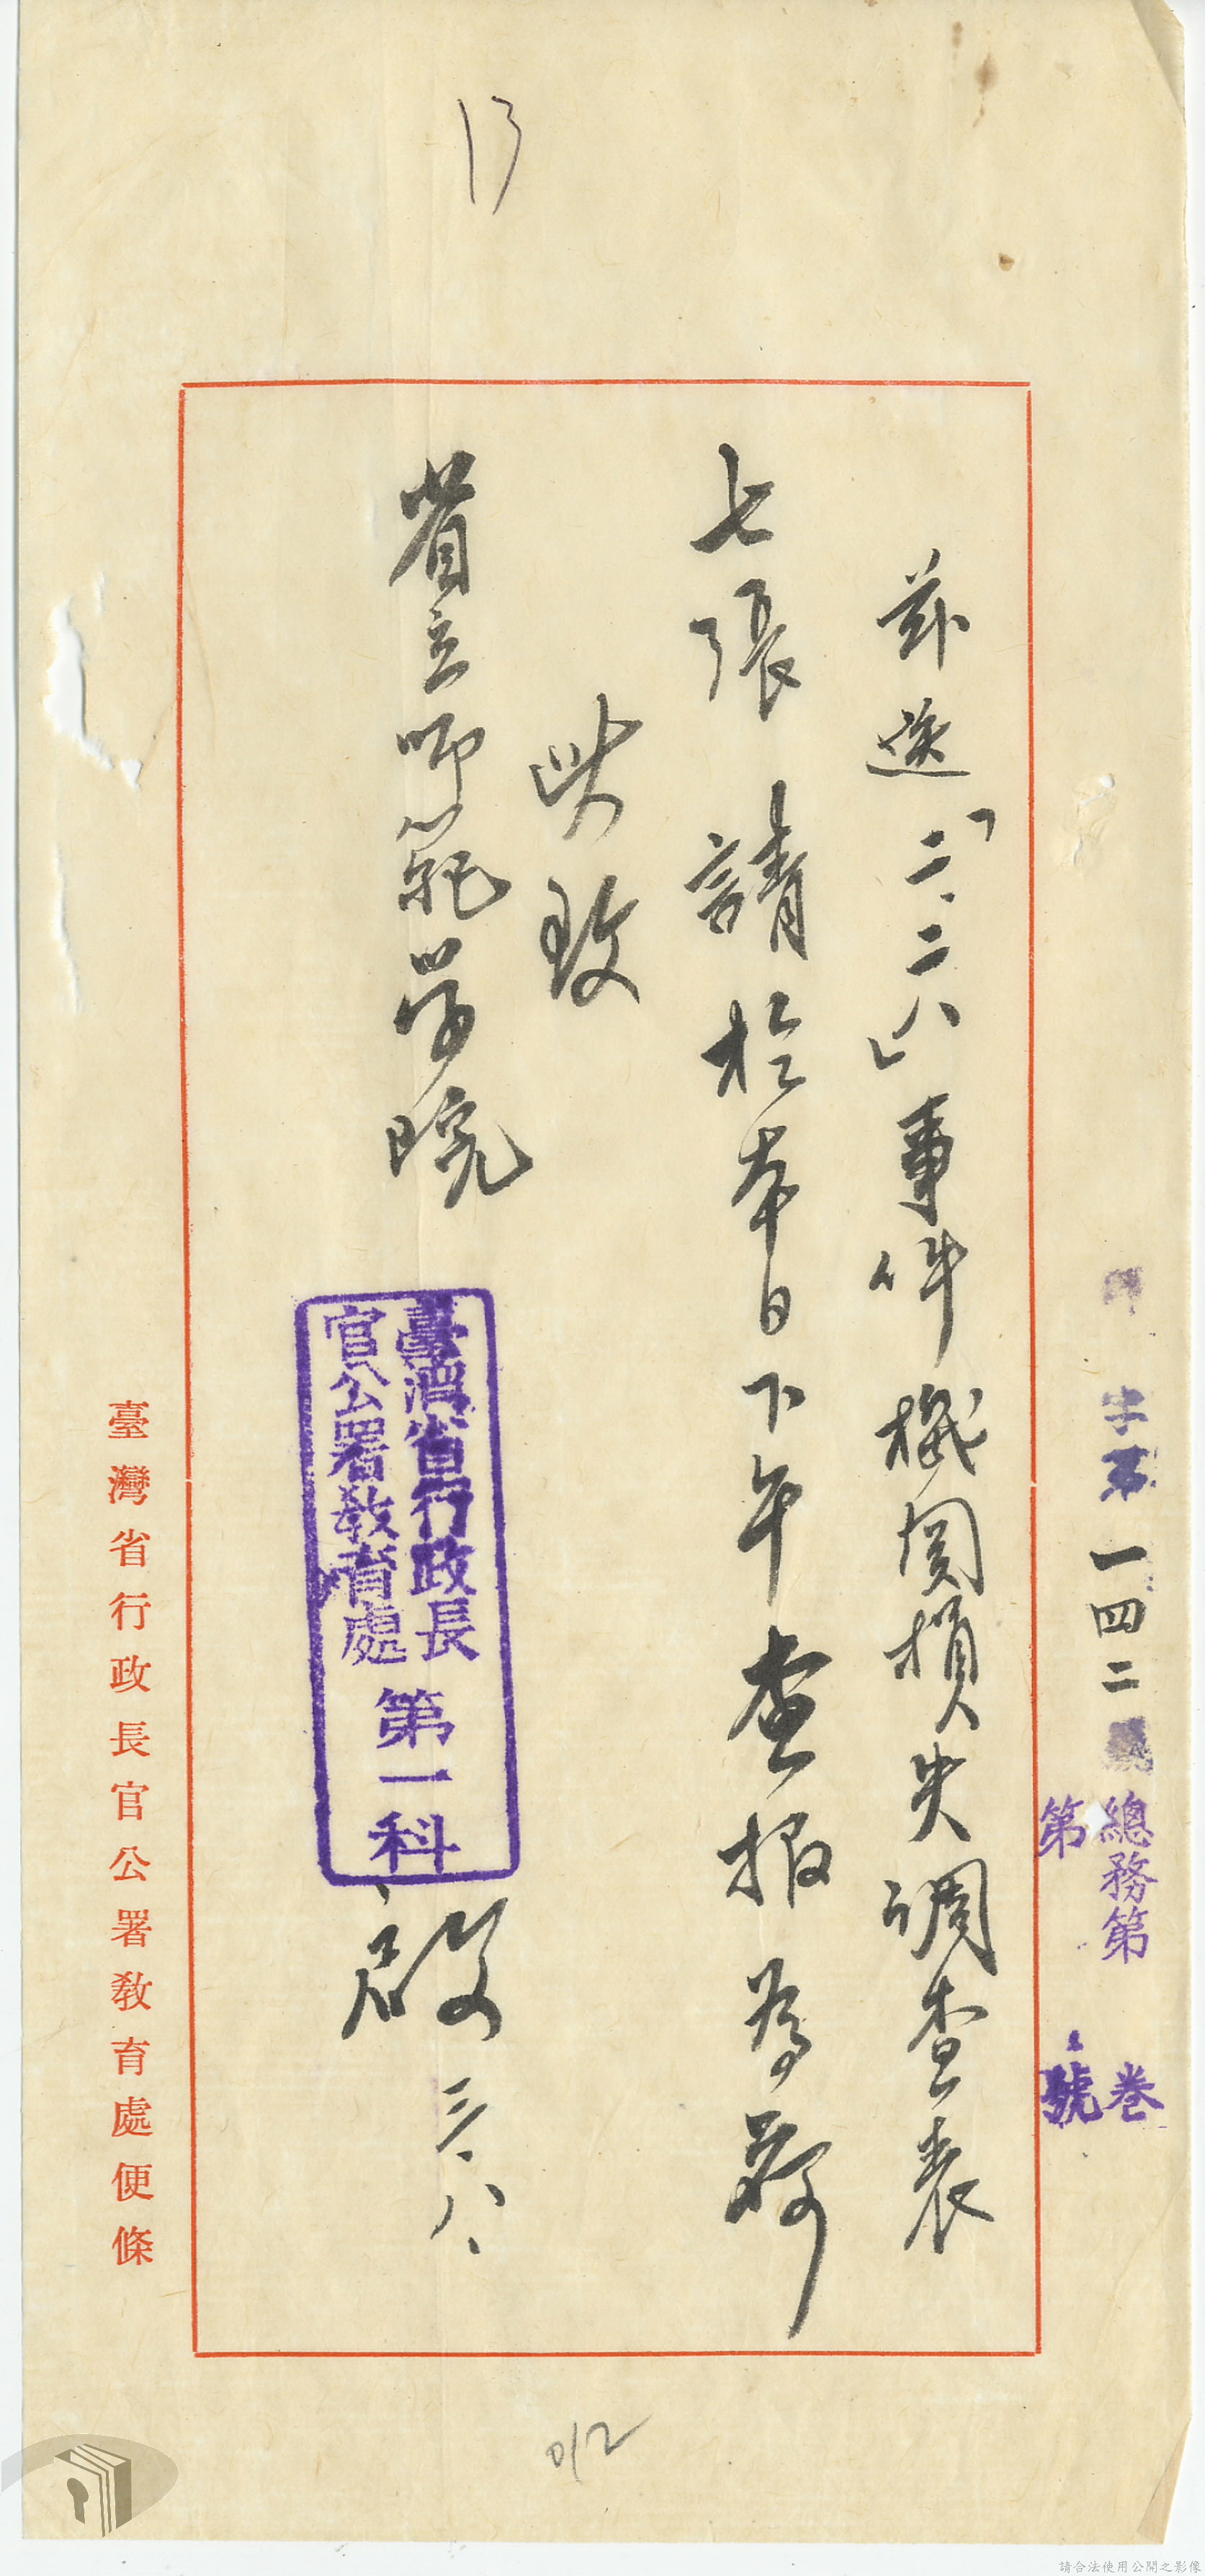 13
字第一四二號
總務第 卷
第 號
茲送「二、二八」事件機関損失調查表
七張請於本日下午查報為荷
此致
省立师範学院
臺灣省行政長
官公署教育處
第一科
啟 三、八、
臺灣省行政長官公署教育處便條
012
請合法使用公開之影像